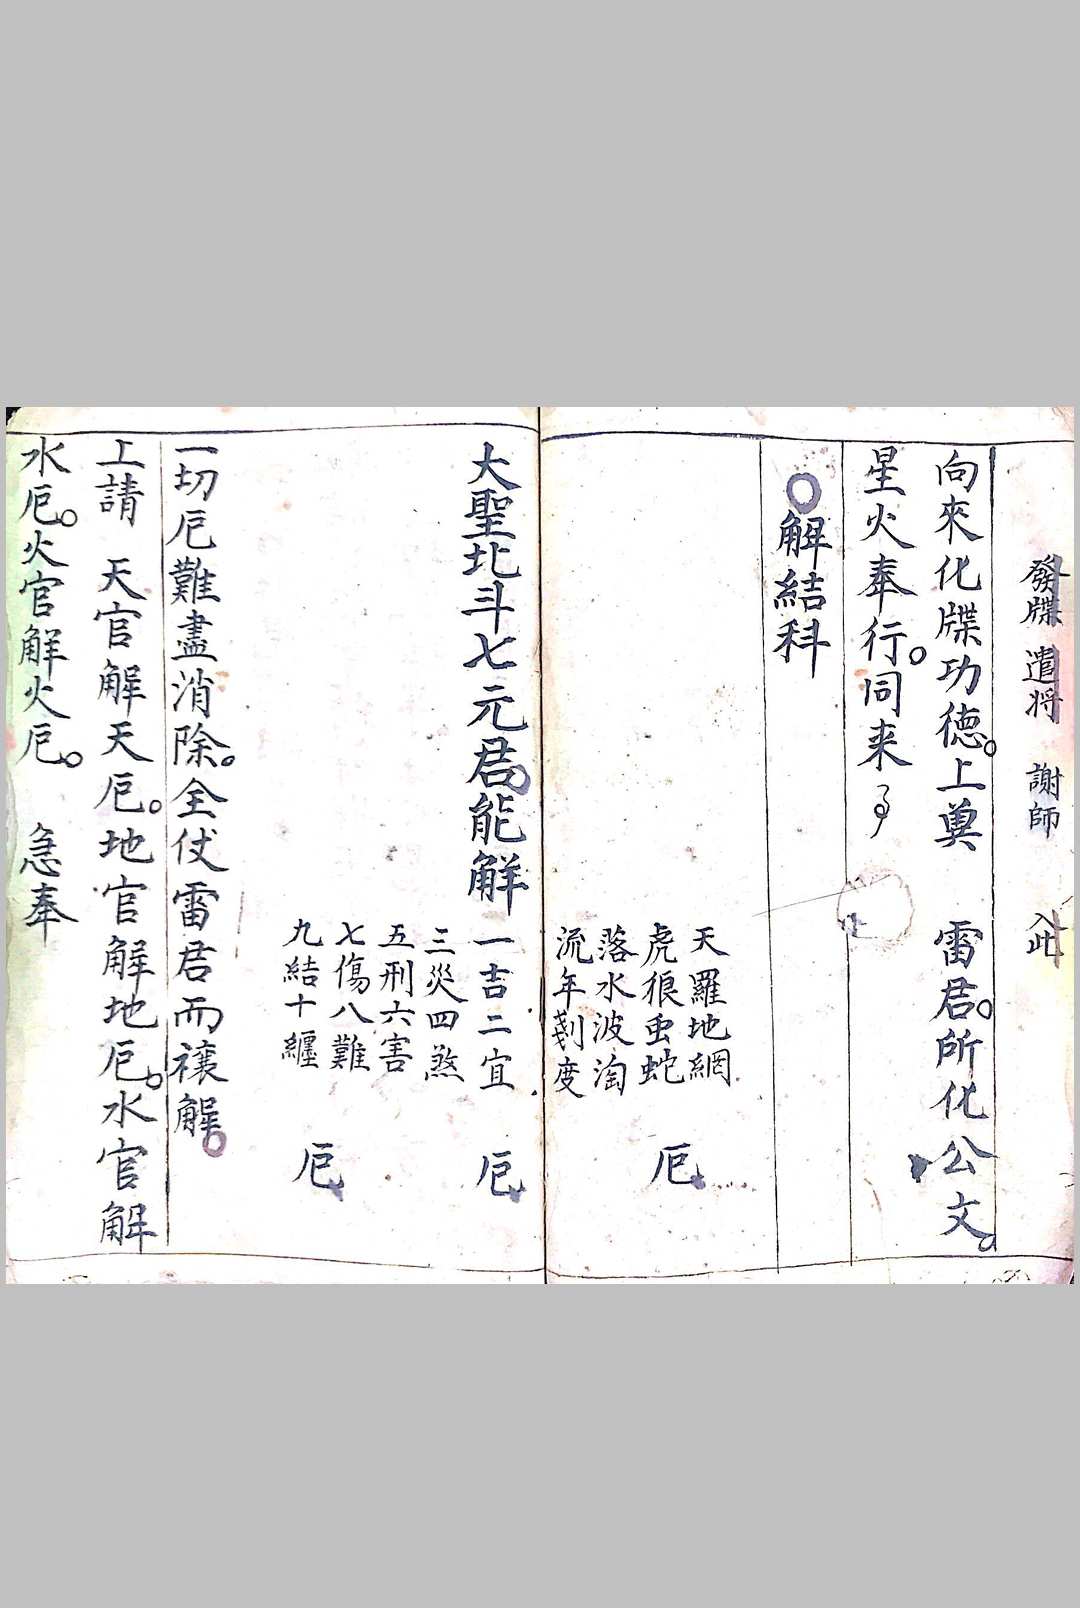 發牒 遣将 謝師 
向來化牒功德。上奠 雷君。所化公文。
星火奉行。同来
○解結科
天羅地網
虎狼虫蛇
落水波淘
流年刬度
厄
大聖北斗七元君。能解
一吉二宜
三災四煞
厄
五刑六害
七傷八難
九結十纏
厄
一切厄難盡消除。全仗雷君而禳解。
上請 天官解天厄。地官解地厄。水官解
水厄。火官解火厄。 急奉